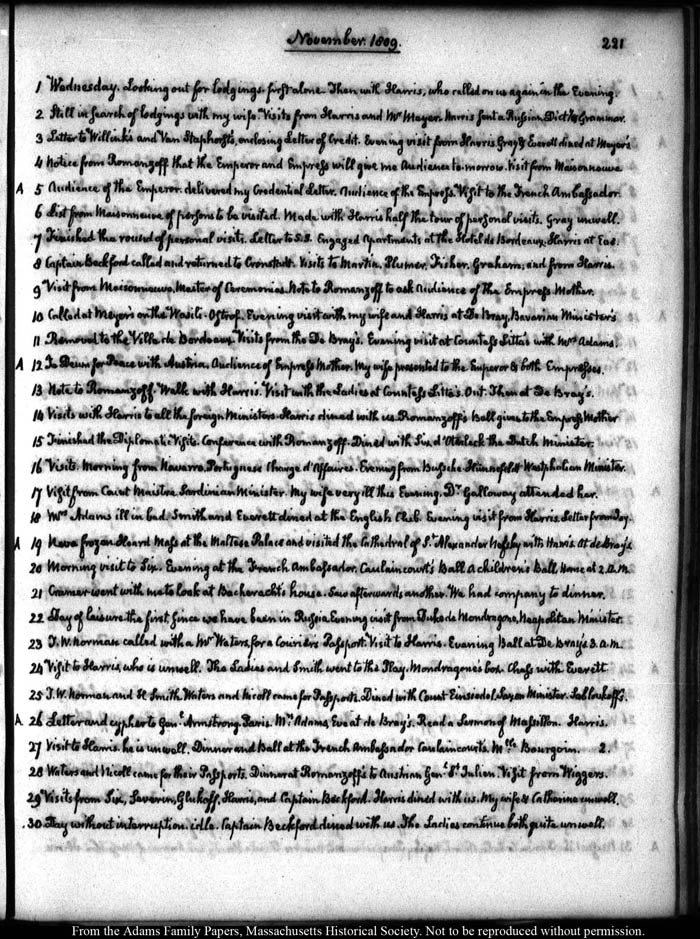 November. 1809.
221
1 Wednesday. Looking out for lodgings. first alone. Then with Harris, who called on us again in the Evening.
2 Still in search of lodgings with my wife. Visits from Harris and Mr Meyer. Harris sent a Russian Dicty & Grammar.
3 Letter to Willink's and Van Staphorst's, enclosing Letter of Credit. Evening visit from Harris Gray & Everett dined at Meyer's
4 Notice from Romanzoff that the Emperor and Empress will give me Audience tomorrow. Visit from Maisonneuve
A 5 Audience of the Emperor. delivered my Credential Letter. Audience of the Empress. Visit to the French Ambassador.
6 List from Maisonneuve of persons to be visited. Made with Harris half the tour of personal visits. Gray unwell.
7 Finished the round of personal visits. Letter to S.S. Engaged Apartments at the Hotel de Bordeaux. Harris at Eve.
8 Captain Beckford called and returned to Cronstadt. Visits to Martin, Plumer, Fisher, Graham, and from Harris.
9 Visit from Maisonneuve, Master of Ceremonies. Note to Romanzoff to ask Audience of the Empress Mother.
10 Called at Meyer's on the Wasili-Ostrof. Evening visit with my wife and Harris at De Bray, Bavarian Minister's
11 Removed to the Ville de Bordeaux. Visits from the De Bray's. Evening visit at Countess Litta's with Mrs Adams.
A 12 Te Deum for Peace with Austria. Audience of Empress Mother. My wife presented to the Emperor & both Empresses.
13 Note to Romanzoff. Walk with Harris. Visit with the Ladies at Countess Litta's. Out. Then at De Bray's.
14 Visits with Harris to all the foreign Ministers. Harris dined with us. Romanzoff's Ball given to the Empress Mother
15 Finished the Diplomatic Visits. Conference with Romanzoff. Dined with Six d'Oterbeck the Dutch Minister.
16 Visits. Morning from Navarro, Portuguese Charge d'Affaires. Evening from Bussche Hunnefeldt Westphalian Minister.
17 Visit from Count Maistre Sardinian Minister. My wife very ill this Evening. Dr Galloway attended her.
18 Mrs Adams ill in bed. Smith and Everett dined at the English Club. Evening visit from Harris. Letter from Joy.
A 19 Neva frozen. Heard Mass at the Maltese Palace and visited the Cathedral of St Alexander Nefsky with Harris. At de Bray's
20 Morning visit to Six. Evening at the French Ambassador Caulaincourt's Ball A children's Ball. Home at 2. A.M.
21 Cramer went with me to look at Bacheracht's house. Saw afterwards another. We had company to dinner.
22 Day of leisure the first since we have been in Russia. Evening visit from Duke de Mondragone, Neapolitan Minister.
23 J. W. Norman called with a Mr Waters, for a Couriers Passport. Visit to Harris. Evening Ball at De Bray's 3. A.M.
24 Visit to Harris, who is unwell. The Ladies and Smith went to the Play. Mondragone's box. Chess with Everett
25 J. W. Norman and St Smith. Waters and Nicoll came for Passports. Dined with Count Einsiedel Saxon Minister. Sabloukoff's.
A. 26 Letter and cypher to Genl Armstrong. Paris. Mrs Adams, Eve at de Bray's. Read a Sermon of Massillon. Harris.
27 Visit to Harris. he is unwell. Dinner and Ball at the French Ambassador Caulaincourt's. Mlle Bourgoin. 2.
28 Waters and Nicoll came for their Passports. Dinner at Romanzoff's to Austrian Genl St Julien. Visit from Wiggers.
29 Visits from Six, Severin, Glukoff, Harris, and Captain Beckford. Harris dined with us. My wife & Catherine unwell.
30 Day without interruption. idle. Captain Beckford dined with us. The Ladies continue both quite unwell.
From the Adams Family Papers, Massachusetts Historical Society. Not to be reproduced without permission.